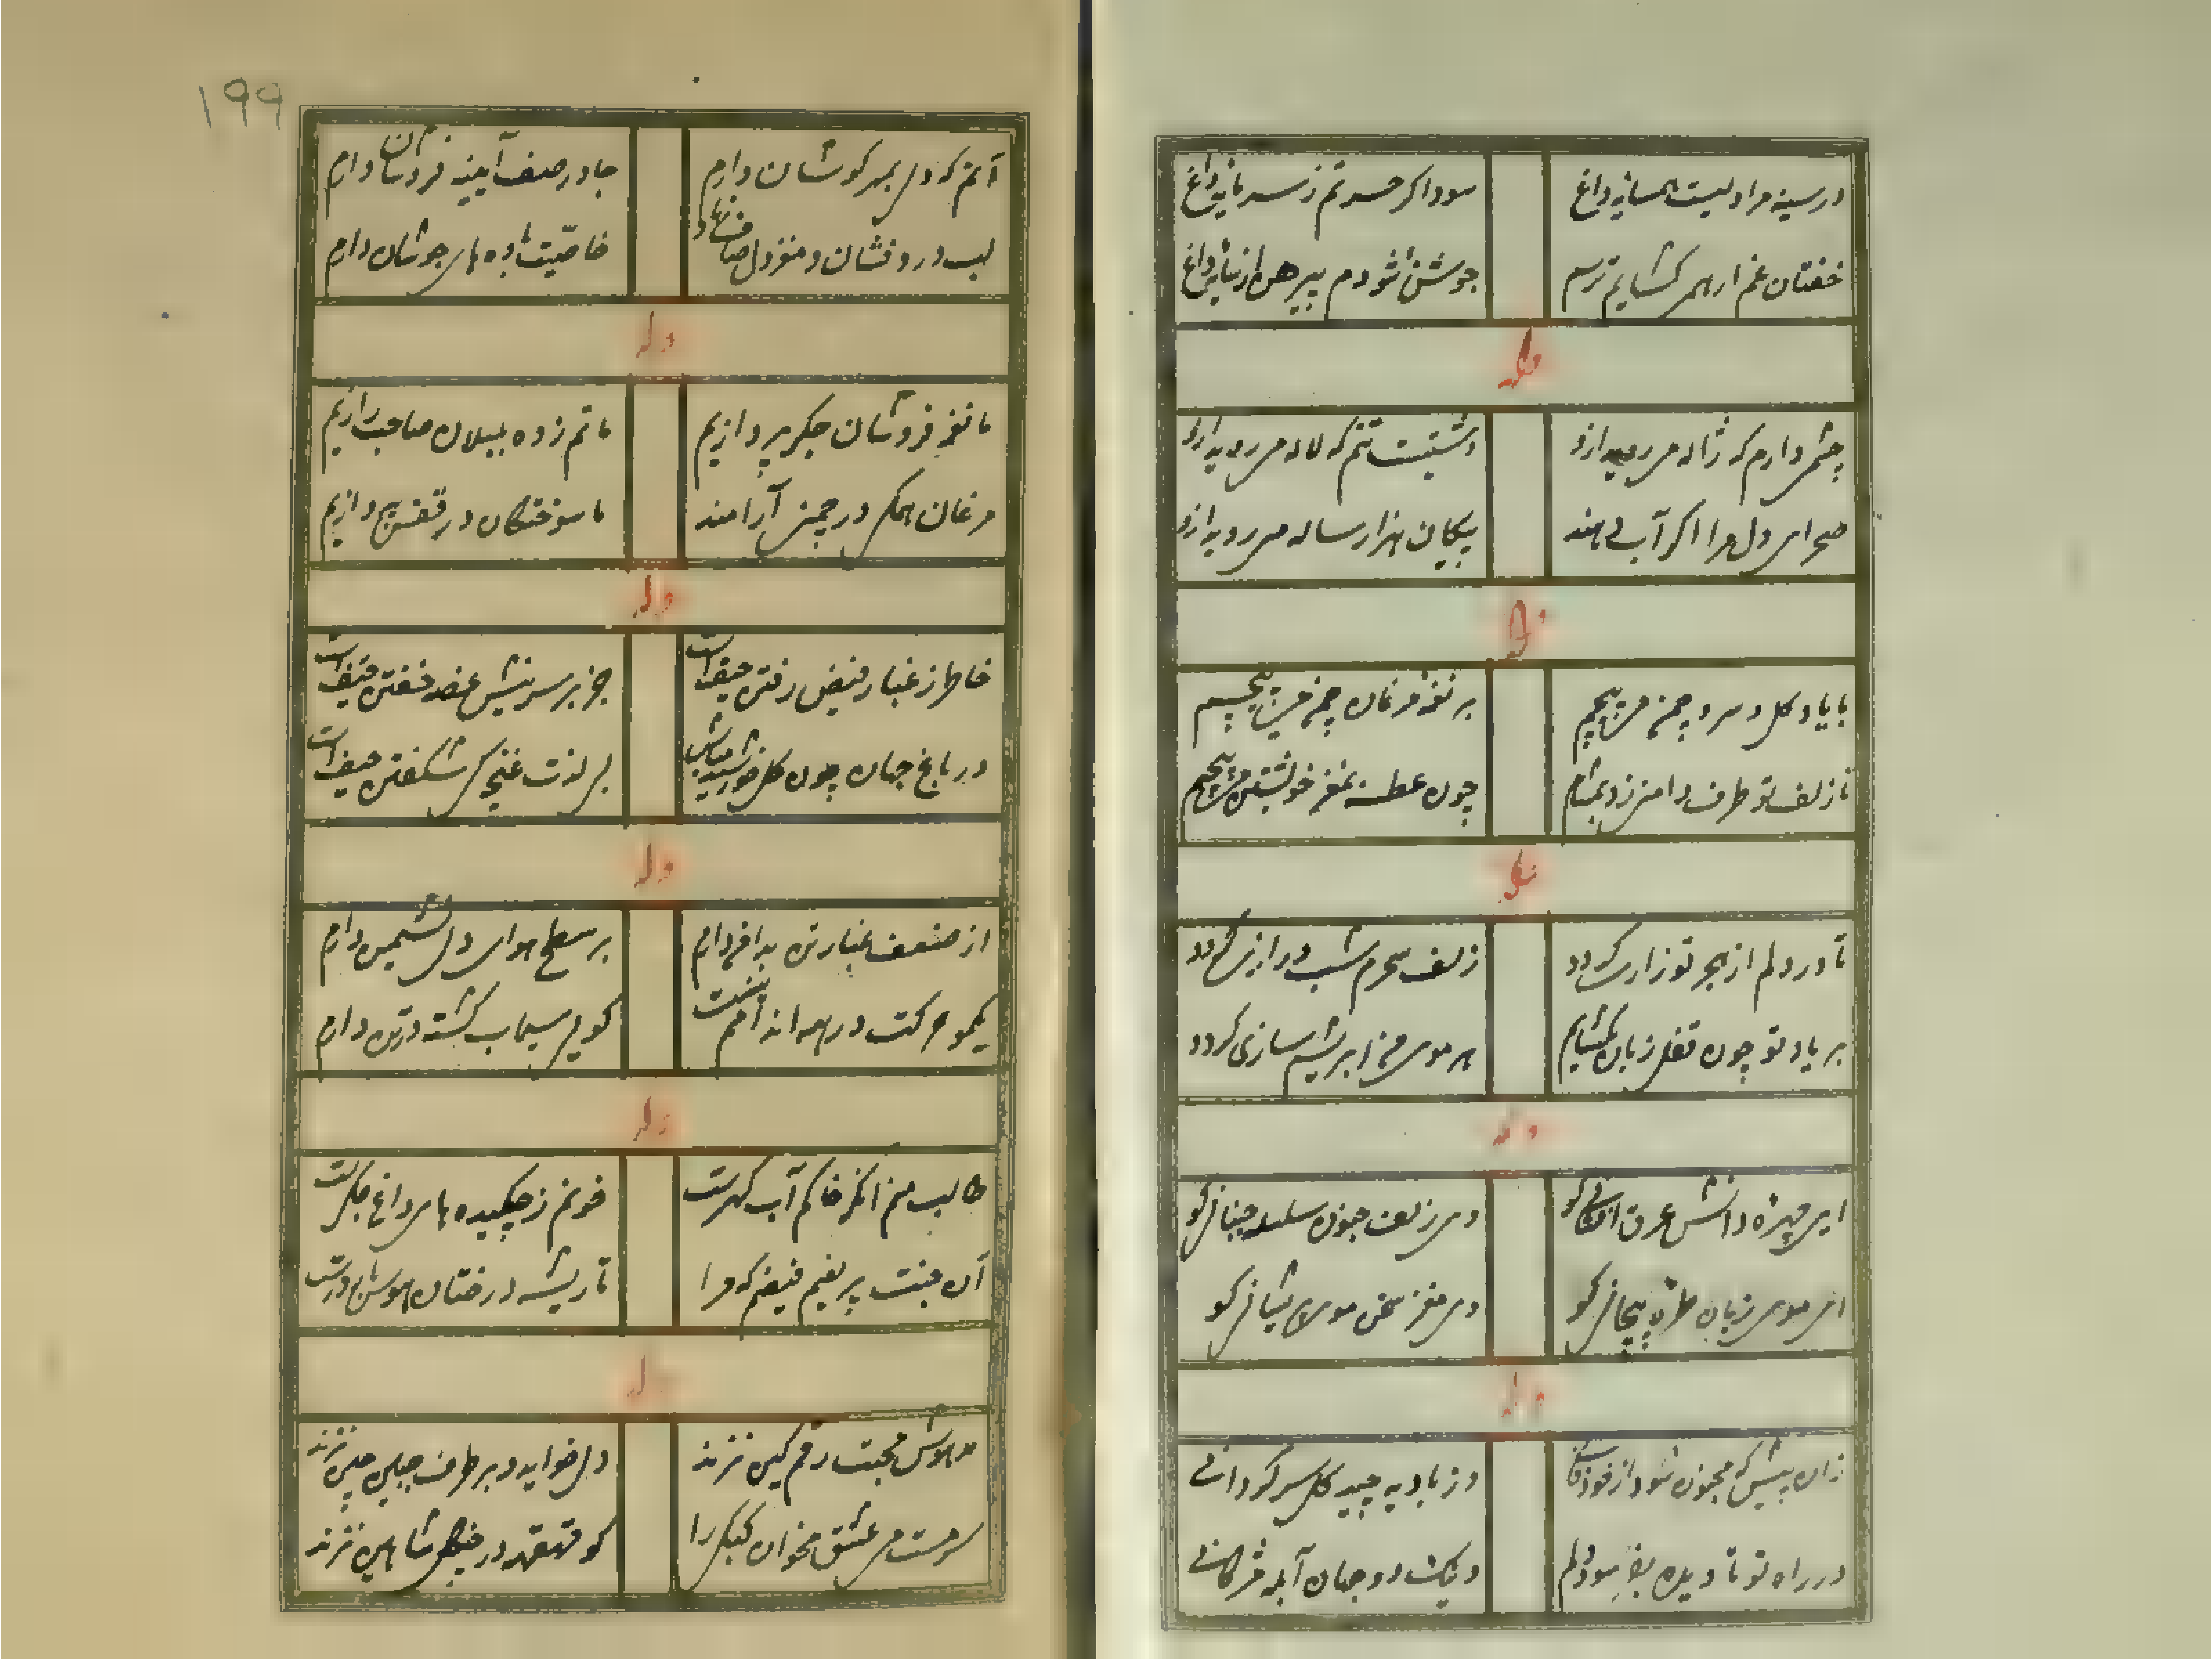 در سینه مرا دلیست همسایه داغ
سوداگر حسرتم ز سرمایه داغ
خفتان غم ار همی گشایم ترسم
جوشن نشود بپیرهن داغ
وله
چشمی دارم که ژاله می‌روید ازو
دشتیست تنم که لاله می‌روید ازو
صحرای دل مرا اگر آب دهند
پیکان هزار ساله می‌روید ازو
وله
با یاد گل و سرو چمن می‌پیچم
بر نغمه مرغان چمن می‌پیچم
تا زلف تو طرف دامن زد بمشام
چون عطسه بمغز خویشتن می‌پیچم
وله
تا درد دلم از هجر تو زاری گردد
زلف سحرم شب درازی گردد
بر یاد تو چون قفل زبان بگشایم
هر موی من ابریشم سازی گردد
وله
ای چهره دانش عرق افشانی کو
وی زلف جنون سلسله جنبانی کو
ای موی زبان طره پیچانی کو
وی مغز سخن موی پریشانی کو
وله
زان پیش که مجنون شود از خود
در بادیه چید گل سرگردانی
در راه تو تا دیده دلم
دو جهان آبله مژگانی
۱۹۹
آنم که دلی بمهر کوشان دارم
جا در صف آینه فروشان دارم
لب درد فشان و مغز دل صاف نهاد
خاصیت باده‌های جوشان دارم
وله
ما نغمه فروشان جگر پردازیم
ماتم زده بلبلان صاحب رازیم
مرغان همگی در چمنی آرامند
ما سوختگان در قفس پروازیم
وله
خاطر ز غبار فیض رفتن حیف است
جز بر سر نیش غصه خفتن حیف است
در باغ جهان چون گل خورشید مباش
بی لذت غنچگی شکفتن حیف است
وله
از ضعف غبار تن بدافزدارم
بر سطح هوای دل نشیمن دارم
یکمو حرکت در همه اندامم نیست
گویی سیماب کشته در تن دارم
وله
طالب منم آنکه خاکم آب گهرست
خونم ز چکیده‌های داغ جگرست
آن جنت پر نعیم فیضم که مرا
تا ریشه درختان هوس بارورست
وله
مدهوش محبت رقم کین نزند
دل خواهد و بر طرف جبین چین نزند
سرمست می عشق مخوان کبکی را
کو قهقهه در چنگل شاهین نزند